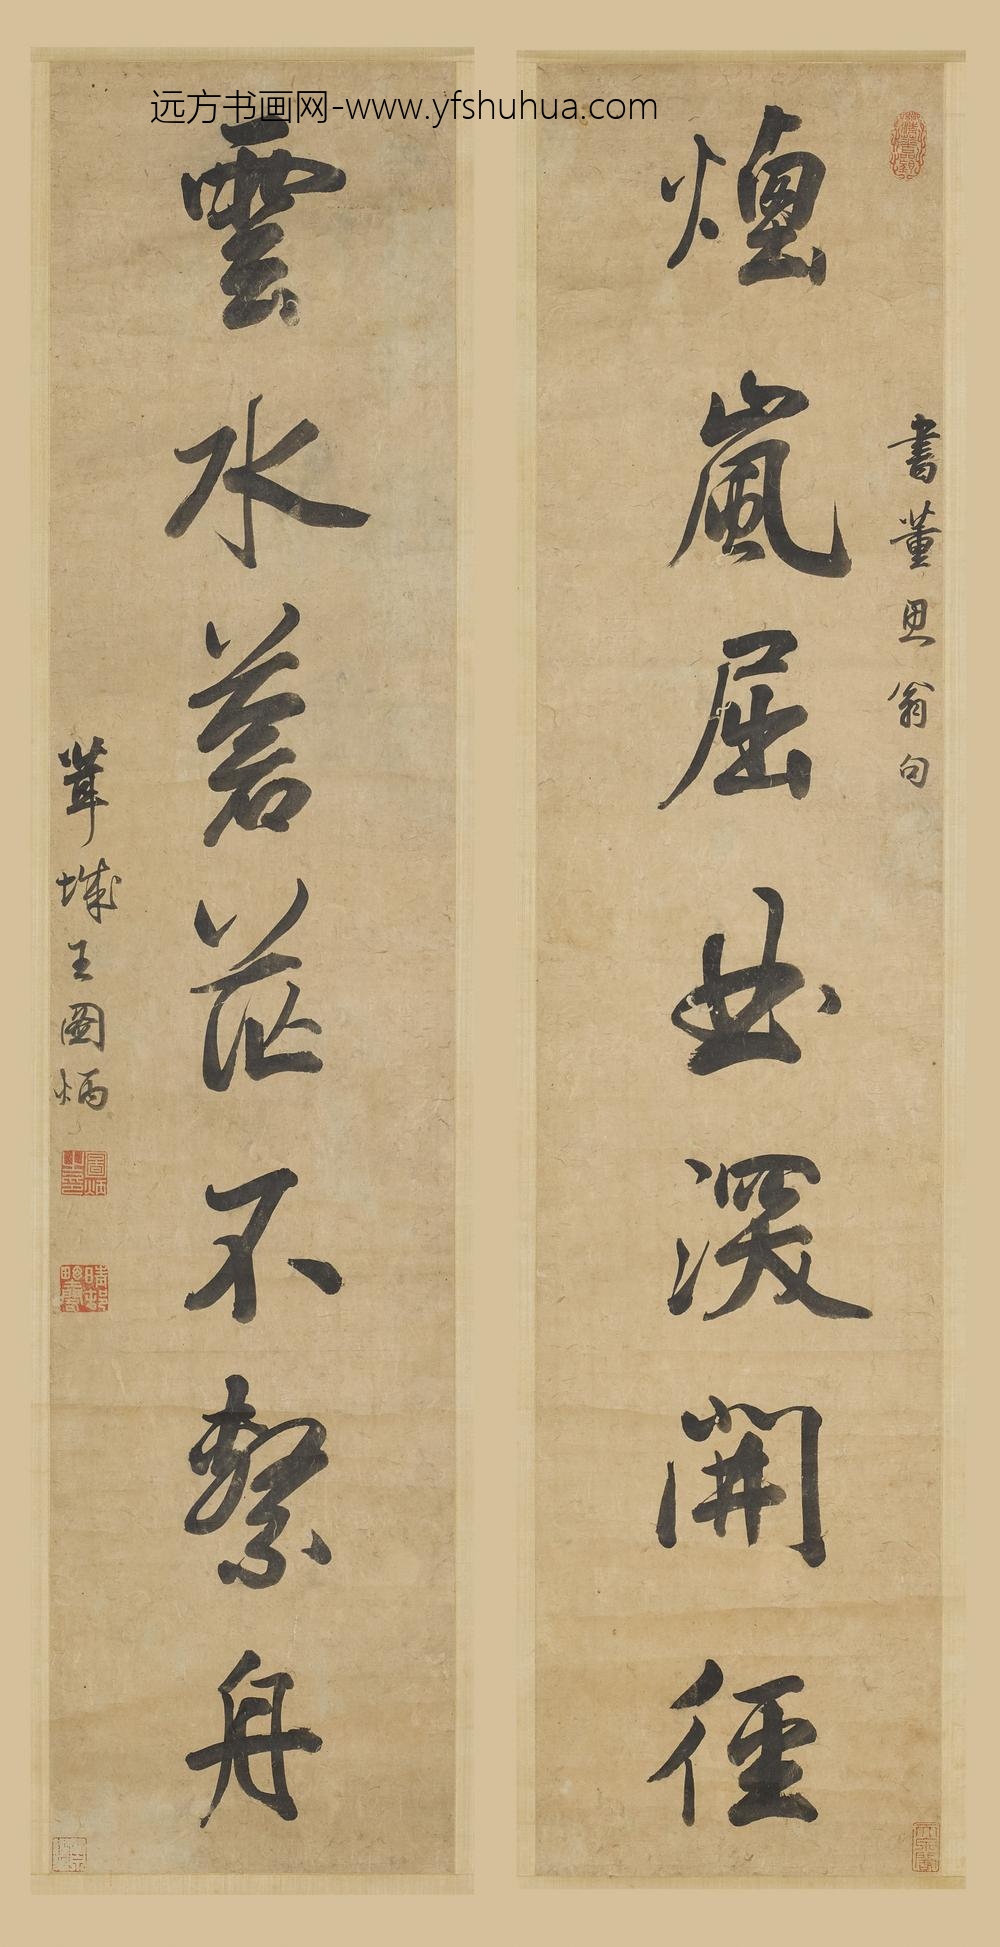 远方书画网-www.yfshuhua.com
書董思翁句
煙嵐屈曲深開徑
雲水蒼茫不繫舟
茸城王圖炳
圖炳之章